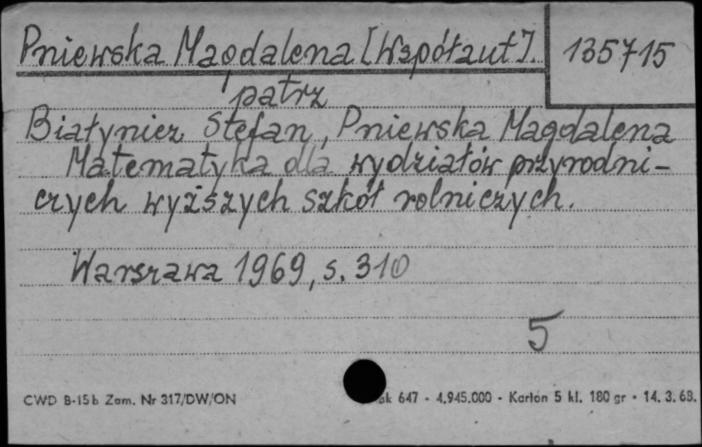 Pniewska Magdalena [Współaut]. 135715
patrz
Białynicz Stefan, Pniewska Magdalena
Matematyka dla wydziałów przyrodni-
czych wyższych szkół rolniczych.
Warszawa 1969, s. 310
5
CWD B-15b Zam. Nr 317/DW/ON 647 - 4.945.000 - Karton 5 kl. 180 gr - 14. 3. 68.